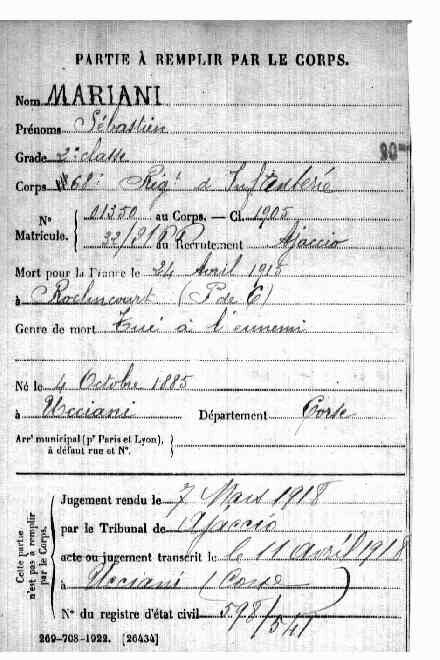 PARTIE À REMPLIR PAR LE CORPS.
Nom MARIANI
Prénoms Sébastien
Grade 2e classe
Corps 68e Rigt d'Infanterie
N° Matricule. { 01350 au Corps. — Cl. 1905
au Recrutement Ajaccio
Mort pour la France le 24 Avril 1915
à Roclincourt (P de C)
Genre de mort Tué à l'ennemi
Né le 4 Octobre 1885
à Ucciani Département Corse
Arrt municipal (pr Paris et Lyon),
à défaut rue et N°. }
Cette partie n'est pas à remplir par le Corps.
Jugement rendu le 7 Mars 1918
par le Tribunal de Ajaccio
acte ou jugement transcrit le le 11 avril 1918
à Ucciani (Corse)
N° du registre d'état civil 598/541
269-708-1922. [26434]